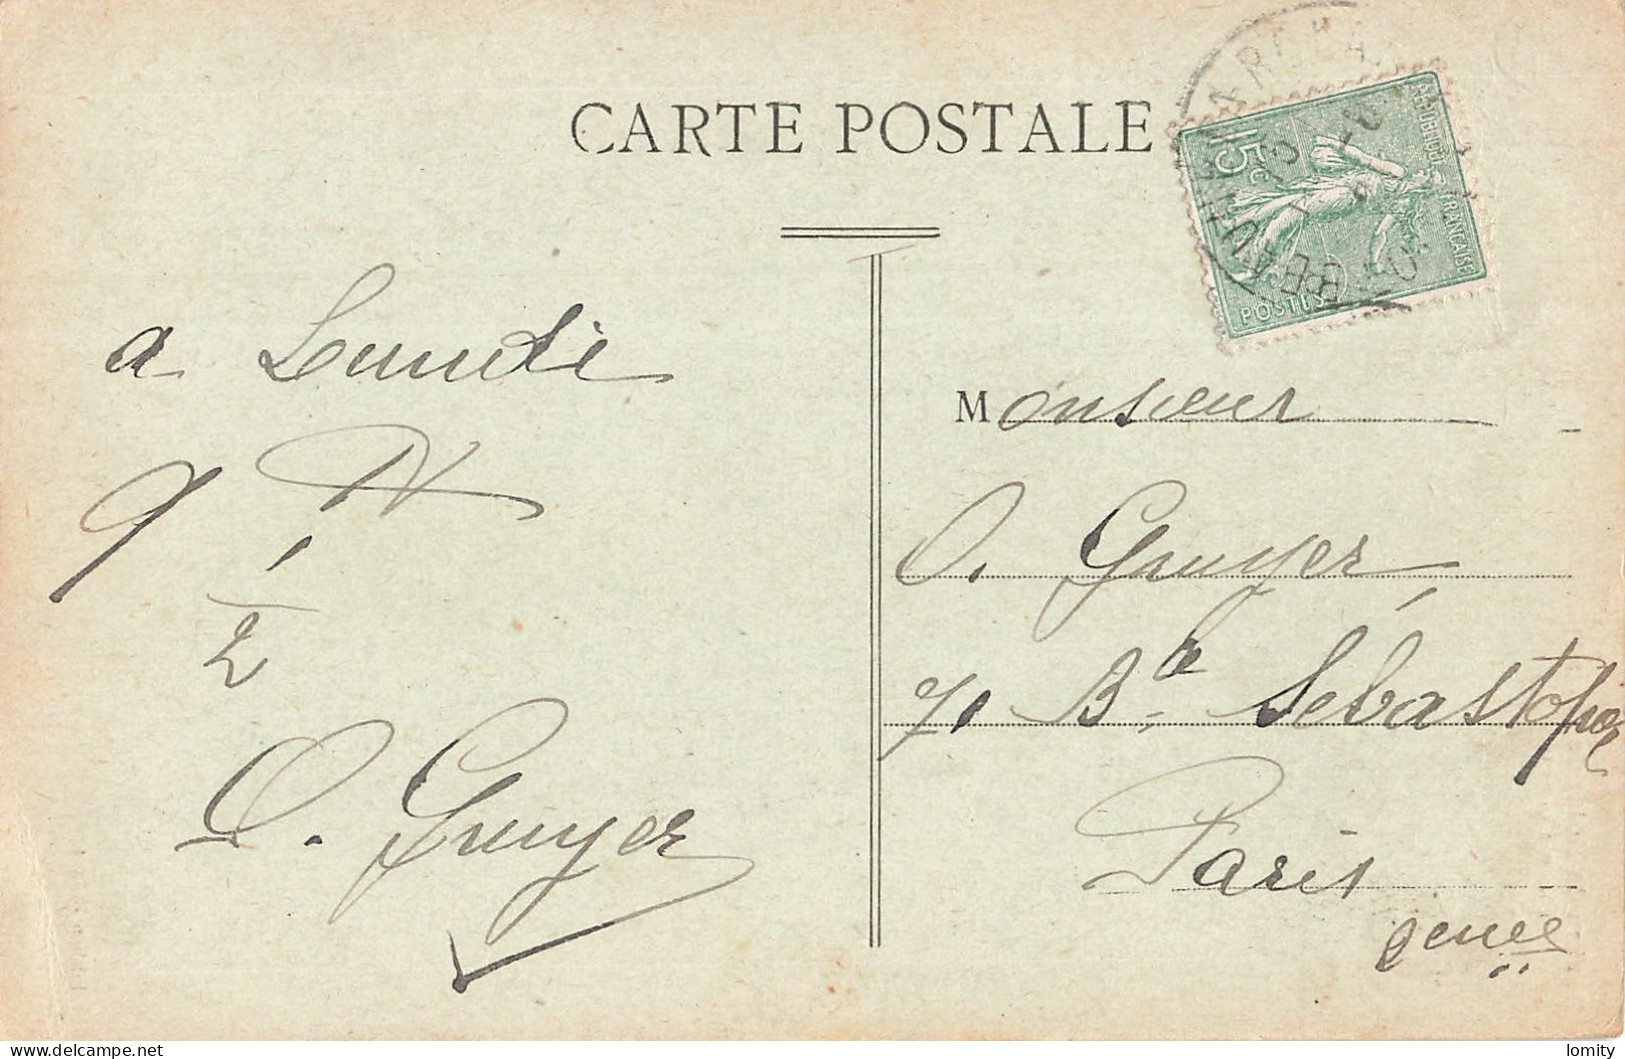 CARTE POSTALE
RÉPUBLIQUE FRANÇAISE
15c
POSTES
a Lundi
9 H
1
2
O. Gruyer
Monsieur
O. Gruyer,
71 Bd. Sébastopol
Paris
2eme
delcampe.net
lomity